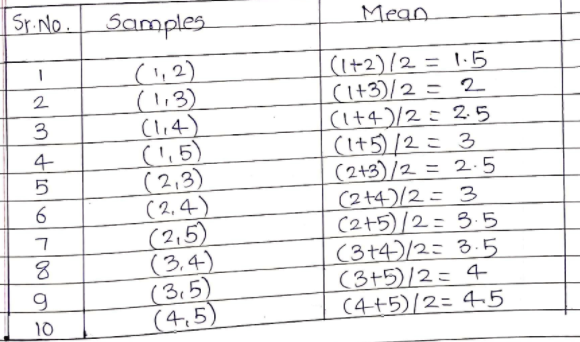 Sr.No. Samples Mean
1 (1,2) (1+2)/2 = 1.5
2 (1,3) (1+3)/2 = 2
3 (1,4) (1+4)/2 = 2.5
4 (1,5) (1+5)/2 = 3
5 (2,3) (2+3)/2 = 2.5
6 (2,4) (2+4)/2 = 3
7 (2,5) (2+5)/2 = 3.5
8 (3,4) (3+4)/2 = 3.5
9 (3,5) (3+5)/2 = 4
10 (4,5) (4+5)/2 = 4.5